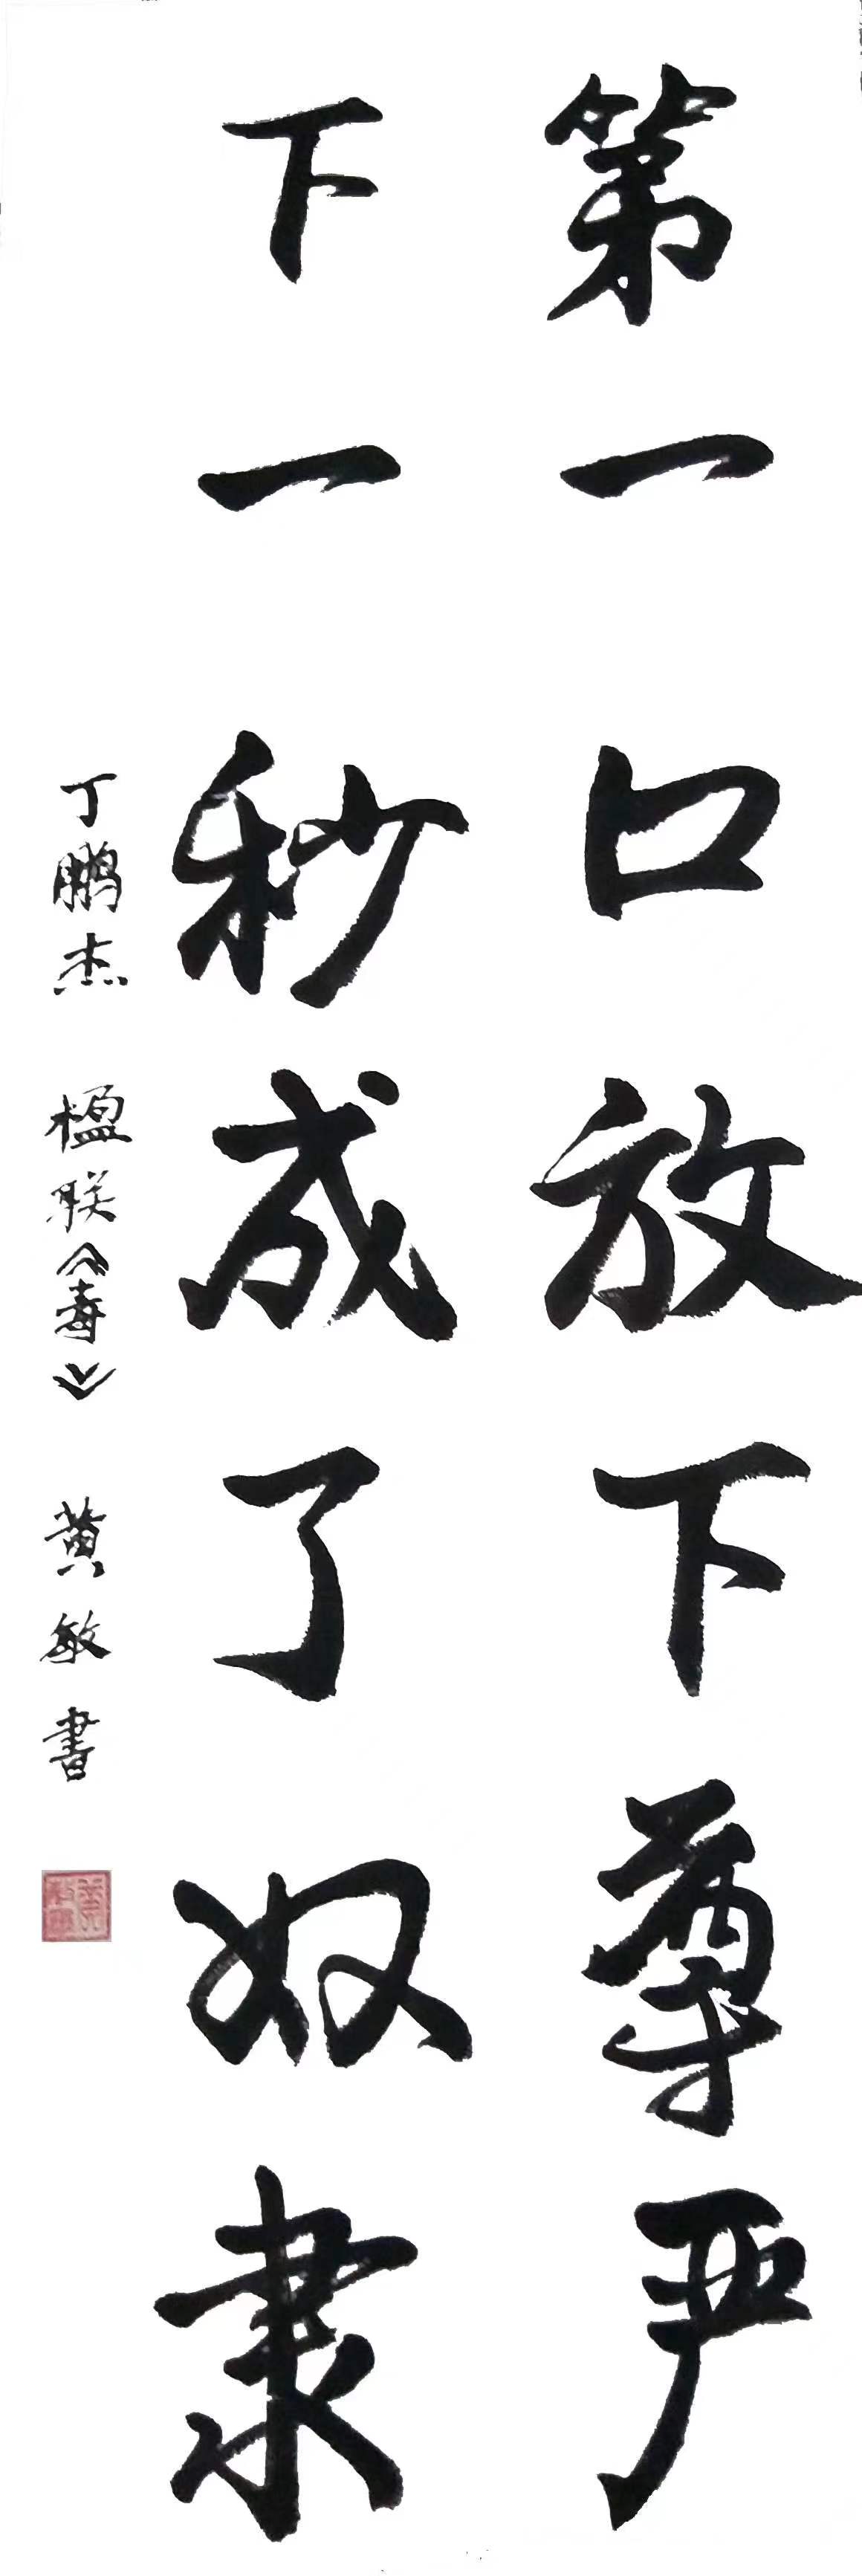 第一口放下尊严
下一秒成了奴隶
丁鹏杰 楹联《毒》 黄敏書